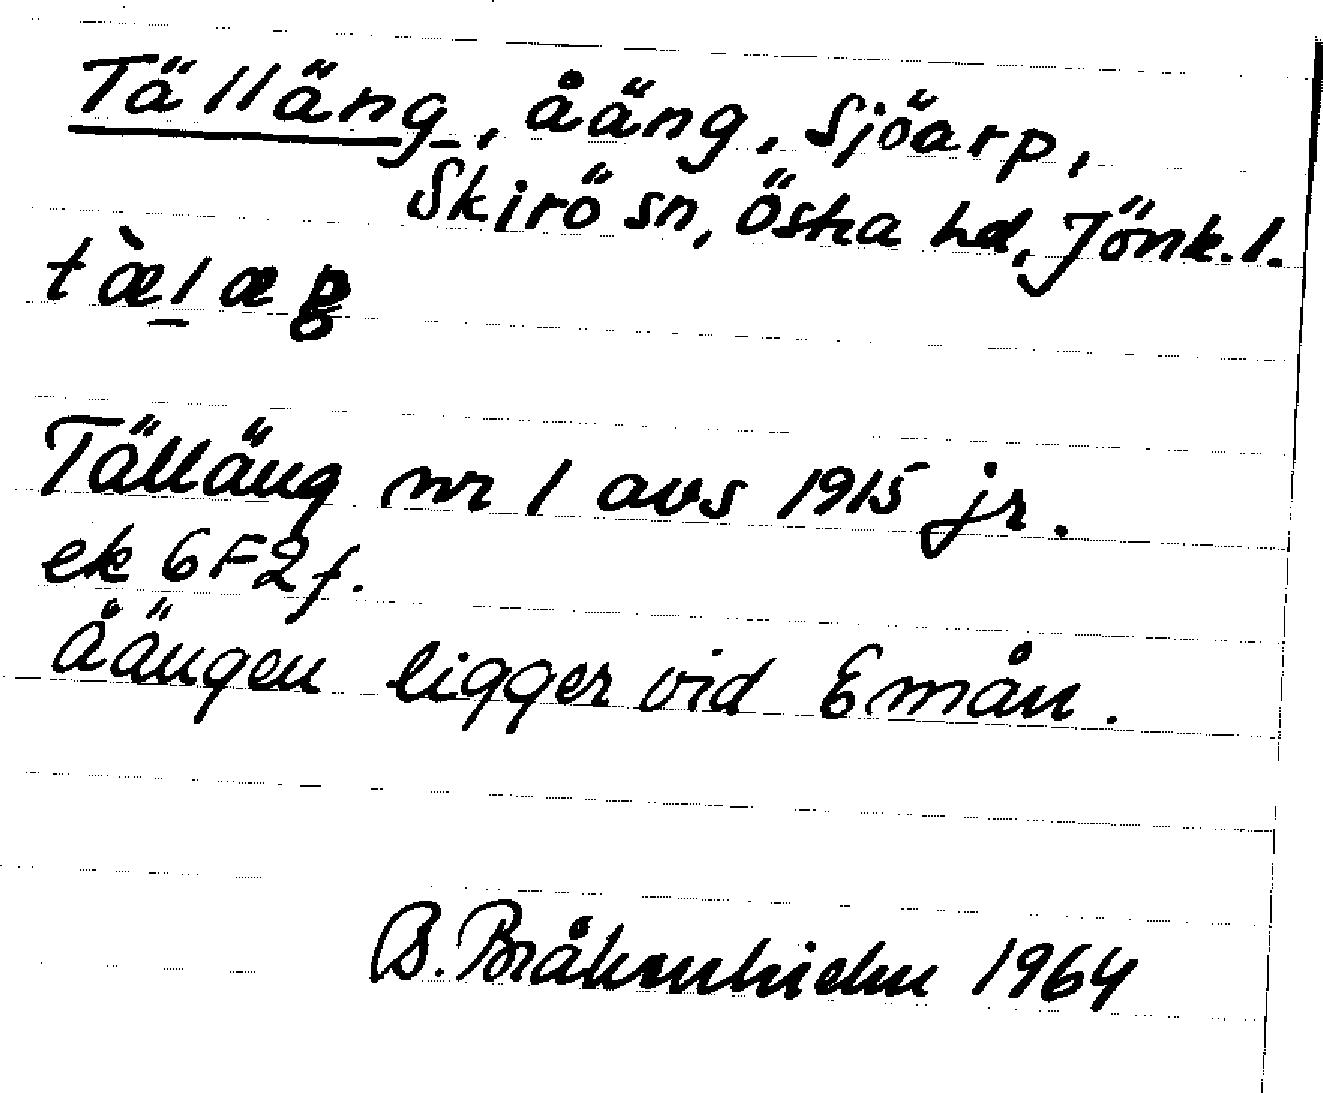 Tälläng, åäng, Sjöarp,
Skirö sn, Östra hd, Jönk. l.
tæ̀l̲æŋ
Tälläng nr 1 avs 1915 jr.
ek 6F2f.
Åängen ligger vid Emån.
B. 1964